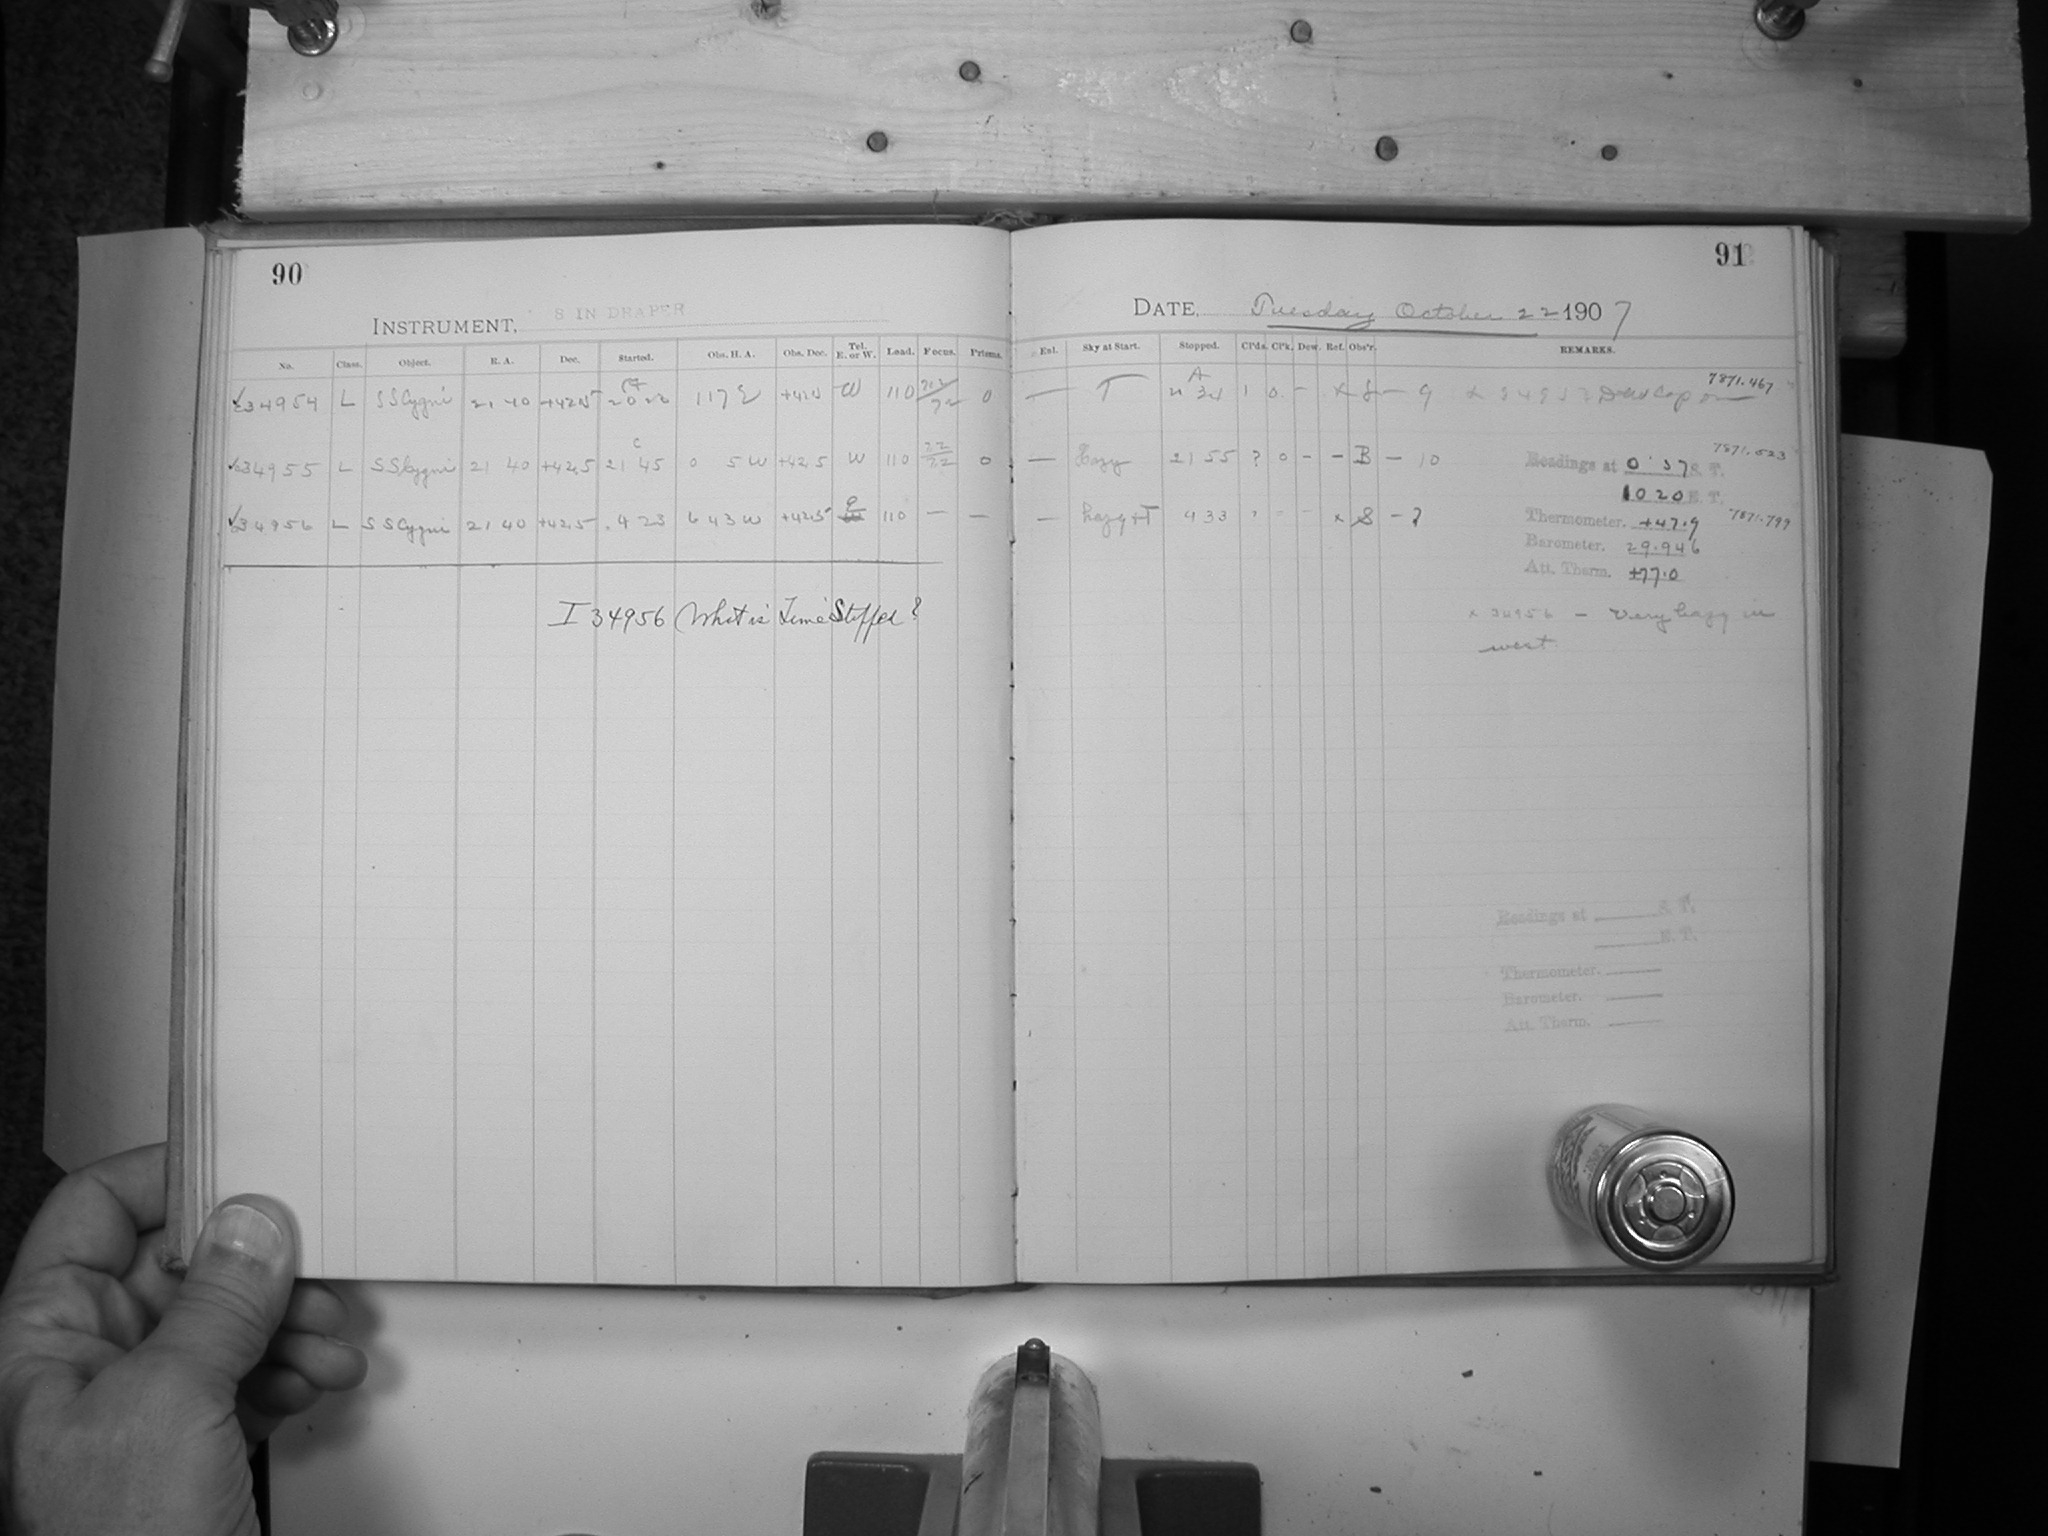 90
INSTRUMENT, 8 IN DRAPER
No. Class. Object. R. A. Dec. Started. Obs. H. A. Obs. Dec. Tel. E. or W. Lead. Focus. Prisms.
34954 L SS Cygni 21 40 +42.5 20 23 1 17 E W 110 0
C
34955 L SS Cygni 21 40 +42.5 21 45 0 5 W +42.5 W 110 22/22 0
34956 L SS Cygni 21 40 +42.5 4 23 6 43 W +42.5 E 110 — —
I 34956 What is Time Stopped?
91
DATE, Tuesday October 22 1907
Enl. Sky at Start. Stopped. Cl'ds. Cl'k. Dew. Ref. Obs'r. REMARKS.
A
— T 1 0 - x S - 9 x 7871.467
— Hazy 21 55 ? 0 - - B - 10 7871.523
Readings at 0 37 S. T.
10 20 E. T.
— hazy + T 4 33 ? - - x S - ? Thermometer. +47.9 7871.799
Barometer. 29.946
Att. Therm. +77.0
x 34956 — Very hazy in
west
Readings at S. T.
E. T.
Thermometer.
Barometer.
Att. Therm.